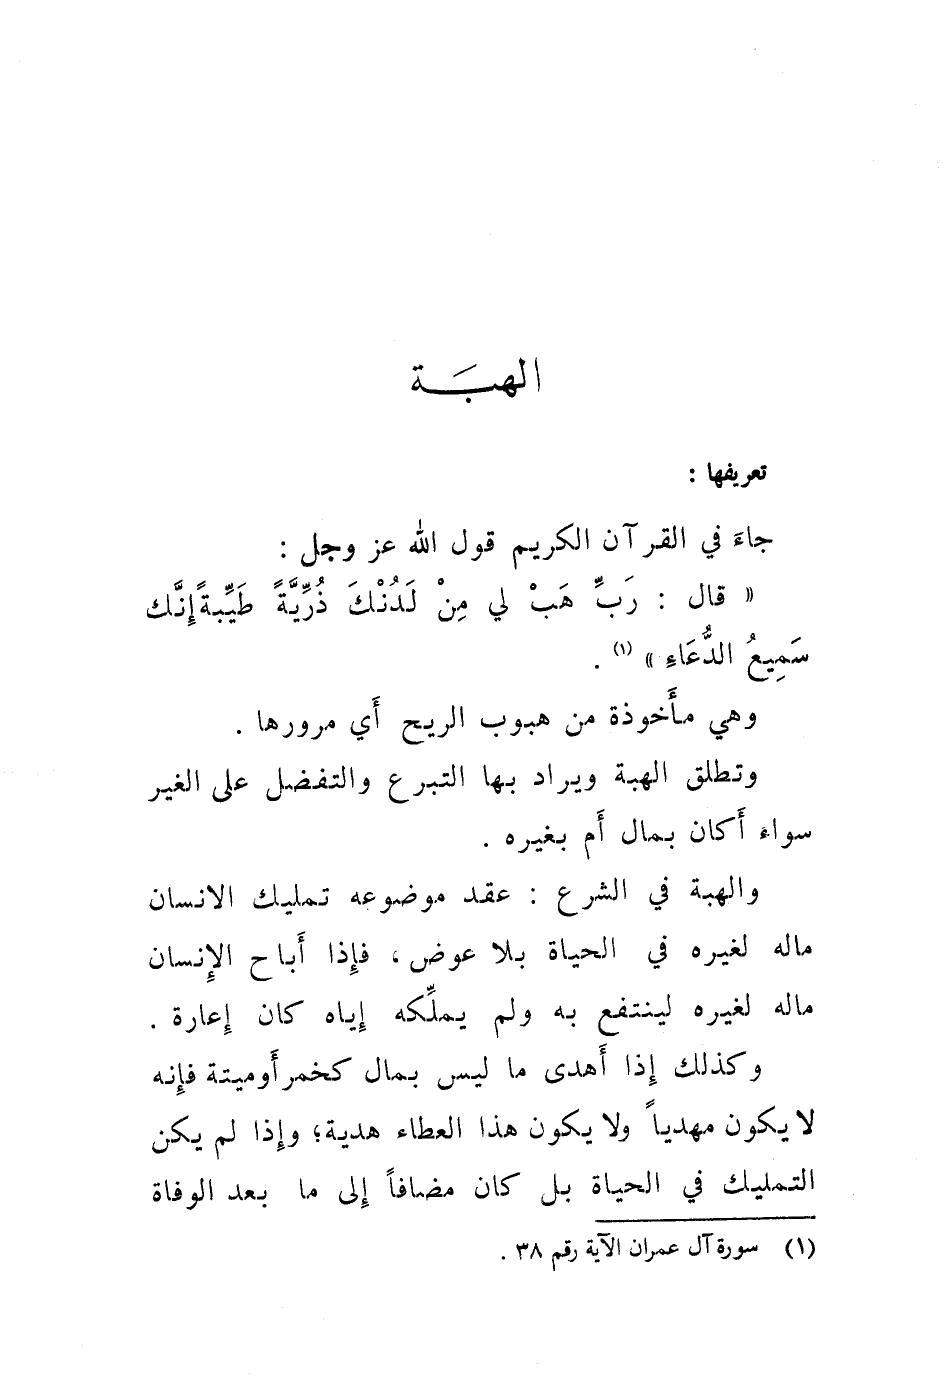 الهبَـــة
تعريفها :
جاءَ في القرآن الكريم قول الله عز وجل :
« قال : رَبِّ هَبْ لي مِنْ لَدُنْكَ ذُرِّيَّةً طَيِّبةً إِنَّك
سَمِيعُ الدُّعَاءِ » (١) .
وهي مأَخوذة من هبوب الريح أَي مرورها .
وتطلق الهبة ويراد بها التبرع والتفضل على الغير
سواء أَكان بمال أَم بغيره .
والهبة في الشرع : عقد موضوعه تمليك الانسان
ماله لغيره في الحياة بلا عوض ، فإِذا أَباح الإِنسان
ماله لغيره لينتفع به ولم يملِّكه إِياه كان إِعارة .
وكذلك إِذا أَهدى ما ليس بمال كخمر أَو ميتة فإِنه
لا يكون مهدياً ولا يكون هذا العطاء هدية؛ وإِذا لم يكن
التمليك في الحياة بل كان مضافاً إِلى ما بعد الوفاة
(١) سورة آل عمران الآية رقم ٣٨ .